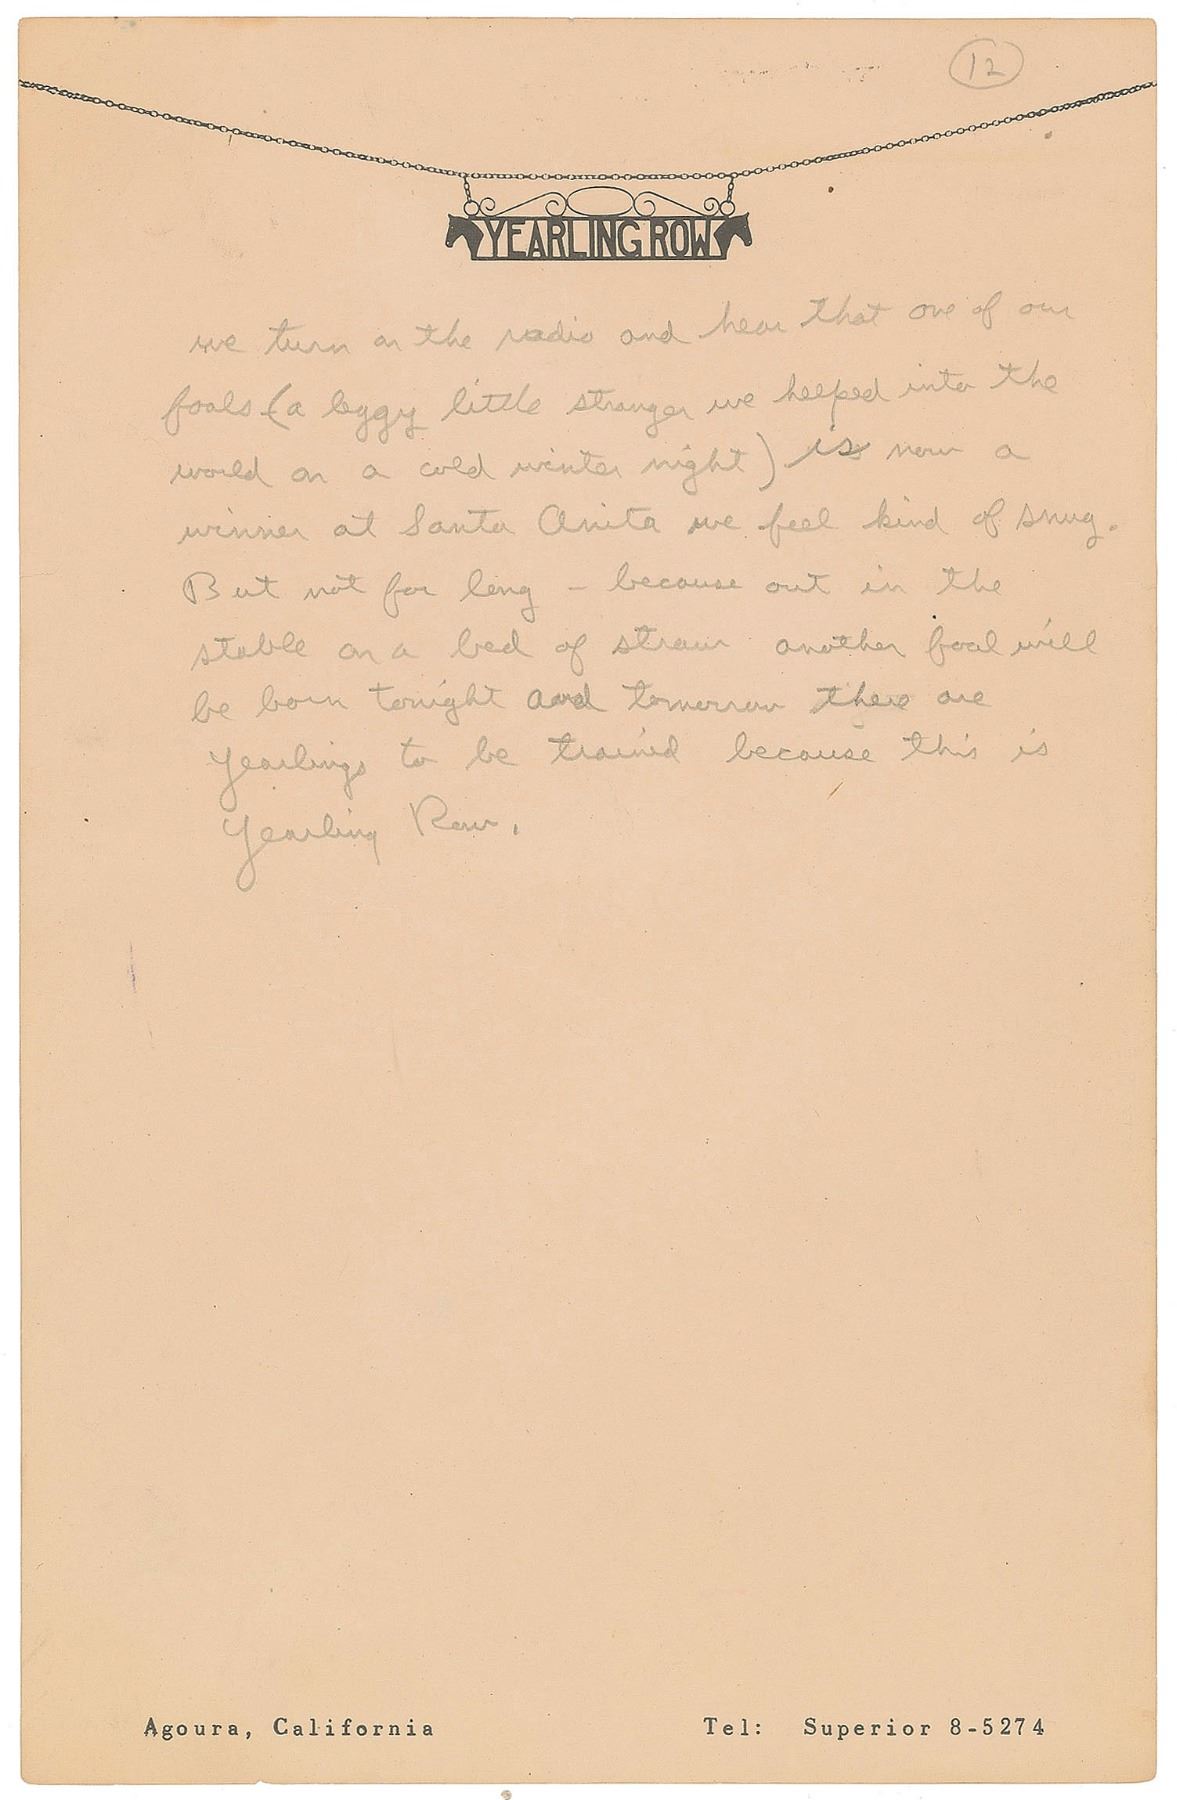 12
YEARLING ROW
we turn on the radio and hear that one of our
foals (a leggy little stranger we helped into the
world on a cold winter night) is now a
winner at Santa Anita we feel kind of snug.
But not for long - because out in the
stable on a bed of straw another foal will
be born tonight and tomorrow there are
yearlings to be trained because this is
Yearling Row.
Agoura, California Tel: Superior 8-5274